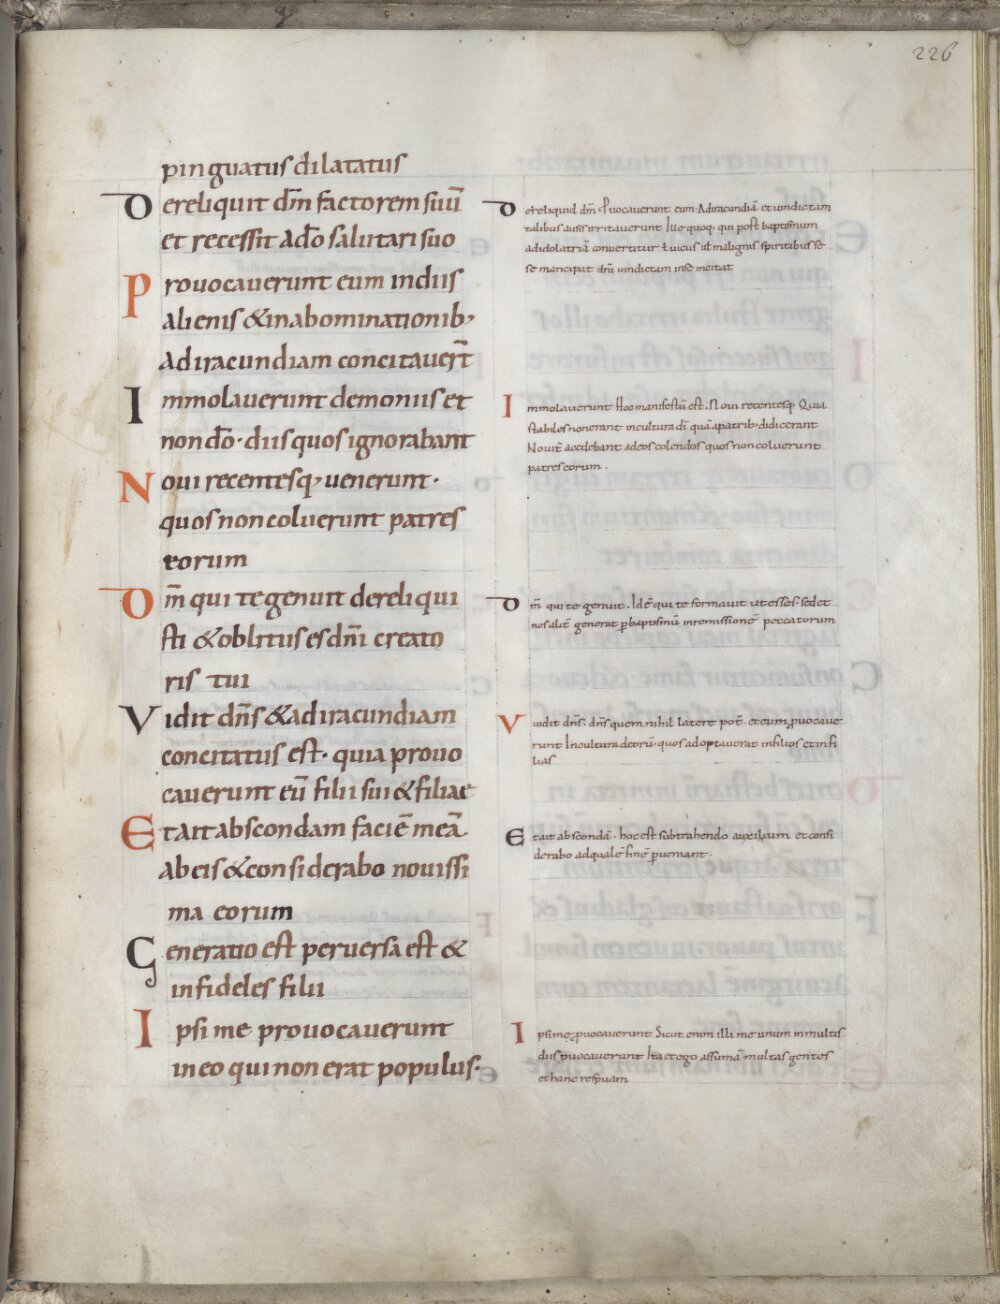 226
pinguatus dilatatus
Dereliquit dm̄ factorem suū
et recessit a dō salutari suo
Provocaverunt eum in diis
alienis & in abominationib;
ad iracundiam concitaver̄t
Immolaverunt demoniis et
non dō · diis quos ignorabant
Novi recentesq; venerunt ·
quos non coluerunt patres
eorum
Dm̄ qui te genuit dereliqui
sti & oblitus es dn̄i creato
ris tui
Vidit dn̄s & ad iracundiam
concitatus est · quia provo
caverunt eū filii sui & filiae
Et ait abscondam faciē meā
ab eis & considerabo novissi
ma eorum
Generatio est perversa est &
infideles filii
Ipsi me provocaverunt
in eo qui non erat populus ·
Dereliquid dm̄ Provocaverunt eum Ad iracundiā et vindictam
talibus ausis irritaverunt Ille quoq; qui post baptismum
ad idolatriā convertitur ł vicus uł malignis spiritibus se
se mancipat dnī vindictam in se incitat
Immolaverunt Hoc manifestū est . Novi recentesq; Quia
stabiles non erant in cultura dī quā a patrib; didicerant
Noviť accedebant ad eos colendos quos non coluerunt
patres eorum .
Dm̄ qui te genuit . Id ē qui te formavit ut esses · sed et
nos aliť generat p baptismū in remissionē peccatorum
Vidit dn̄s · dn̄s quem nihil latere poť · et cum provocave
runt In cultura deorū quos adoptaverat in filios et in fi
lias
Et ait abscondā · hoc est subtrahendo auxilium et consi
derabo ad qualē finē perveniant ·
Ipsi me provocaverunt Sicut enim illi me unum in multis
diis provocaverunt Ita et ego assumā multas gentes
et hanc respuam